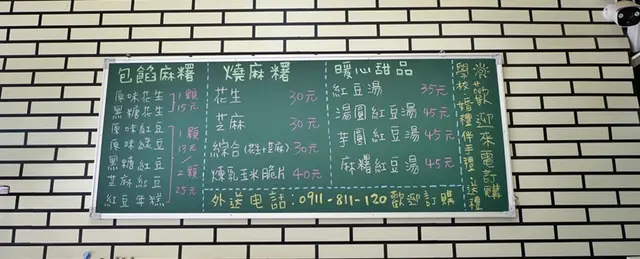 包餡麻糬
原味花生
黑糖花生
1顆
15元
原味紅豆
原味綠豆
黑糖紅豆
芝麻紅豆
紅豆年糕
1顆
13元
/
2顆
25元
燒麻糬
花生 30元
芝麻 30元
綜合(花生+芝麻) 30元
煉乳玉米脆片 40元
暖心甜品
紅豆湯 35元
湯圓紅豆湯 45元
芋圓紅豆湯 45元
麻糬紅豆湯 45元
外送電話:0911-811-120歡迎訂購
歡迎來電訂購
學校、婚禮伴手禮、送禮